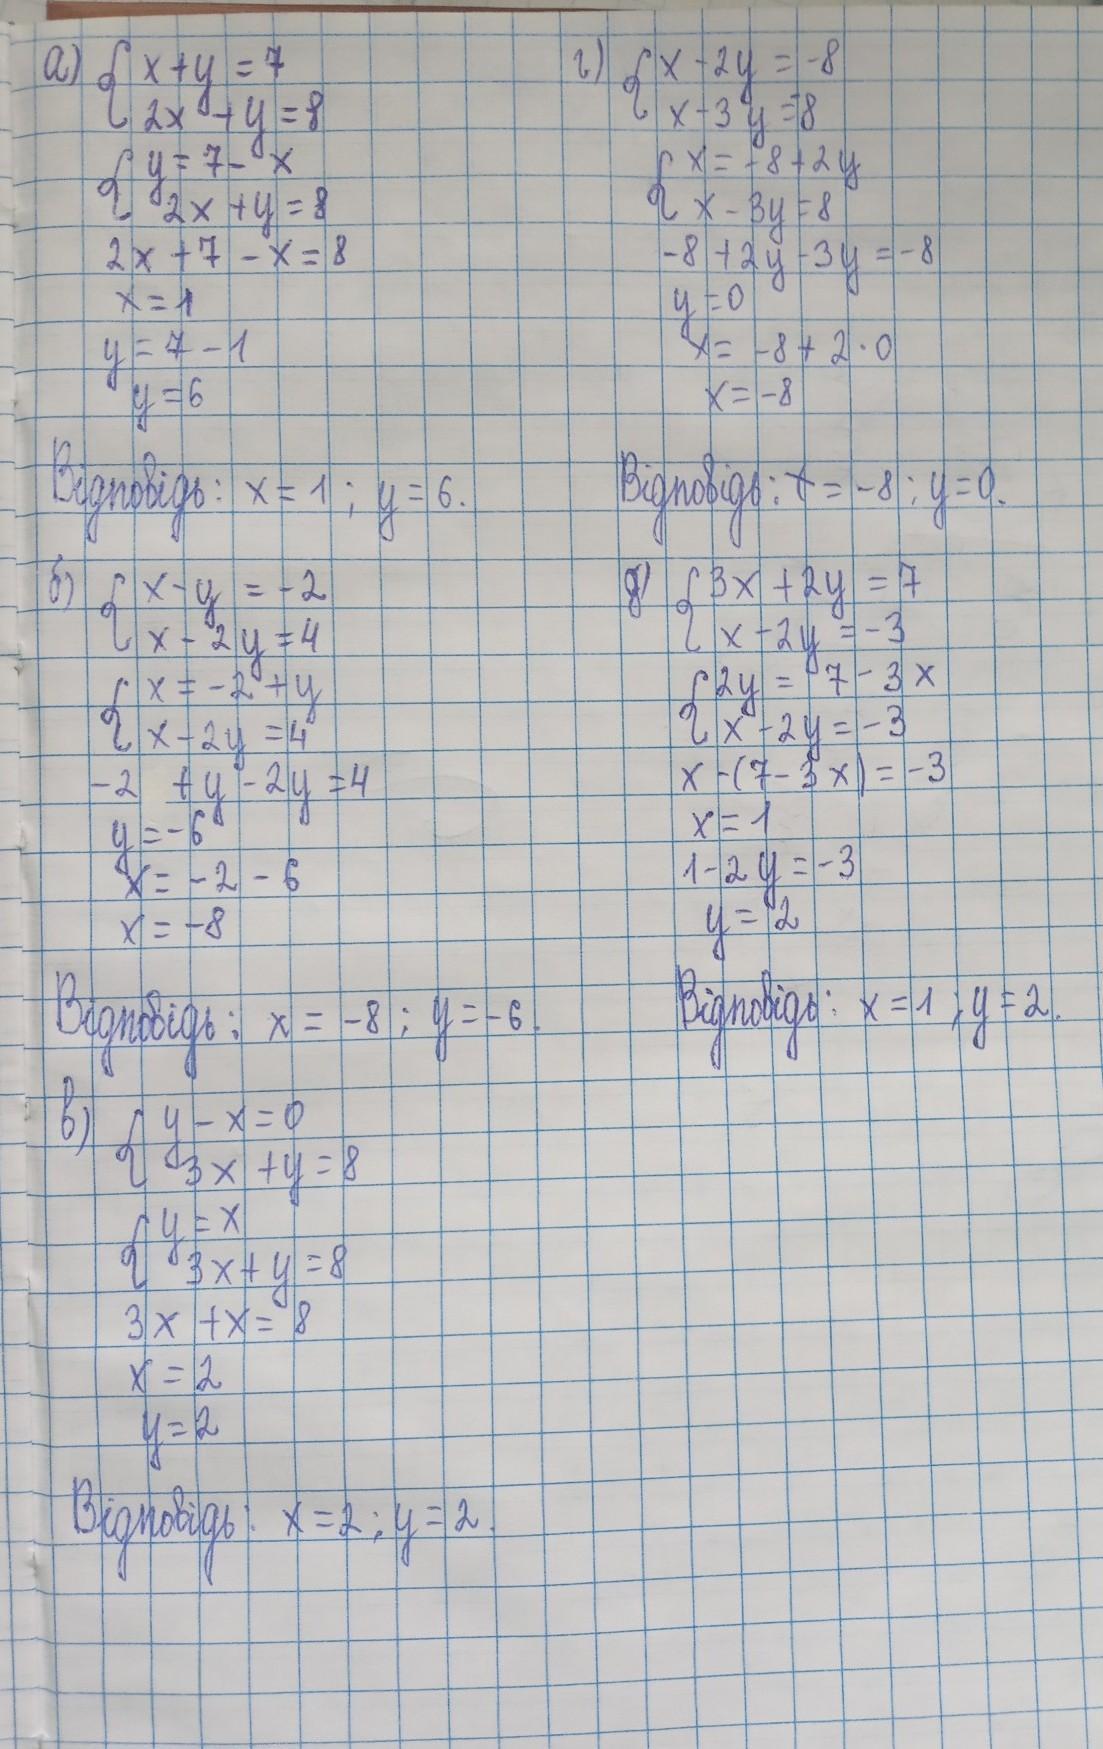 а) { x + y = 7
2x + y = 8
{ y = 7 - x
2x + y = 8
2x + 7 - x = 8
x = 1
y = 7 - 1
y = 6
Відповідь: x = 1 ; y = 6.
б) { x - y = -2
x - 2y = 4
{ x = -2 + y
x - 2y = 4
-2 + y - 2y = 4
y = -6
x = -2 - 6
x = -8
Відповідь: x = -8 ; y = -6.
в) { y - x = 0
3x + y = 8
{ y = x
3x + y = 8
3x + x = 8
x = 2
y = 2
Відповідь: x = 2 ; y = 2.
г) { x - 2y = -8
x - 3y = -8
{ x = -8 + 2y
x - 3y = 8
-8 + 2y - 3y = -8
y = 0
x = -8 + 2 · 0
x = -8
Відповідь: x = -8 ; y = 0.
д) { 3x + 2y = 7
x - 2y = -3
{ 2y = 7 - 3x
x - 2y = -3
x - (7 - 3x) = -3
x = 1
1 - 2y = -3
y = 2
Відповідь: x = 1 ; y = 2.